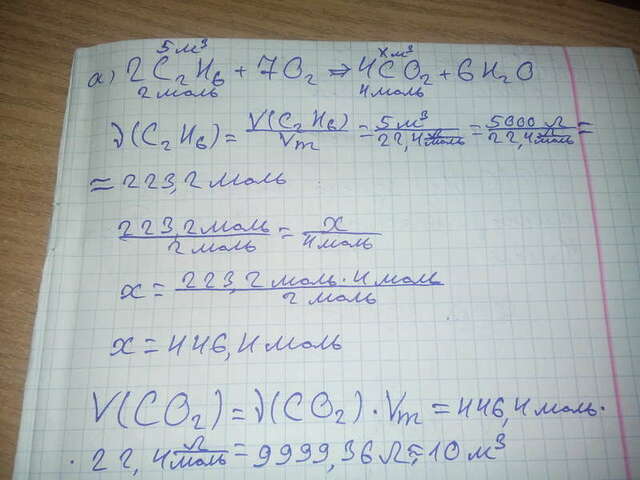 5 м³ x м³
а) 2C₂H₆ + 7O₂ ⇒ 4CO₂ + 6H₂O
2 моль 4 моль
ν(C₂H₆) = V(C₂H₆)/Vm = 5 м³/22,4 л/моль = 5000 л/22,4 л/моль =
= 223,2 моль
223,2 моль/2 моль = x/4 моль
x = 223,2 моль · 4 моль/2 моль
x = 446,4 моль
V(CO₂) = ν(CO₂) · Vm = 446,4 моль ·
· 22,4 л/моль = 9999,36 л ≈ 10 м³